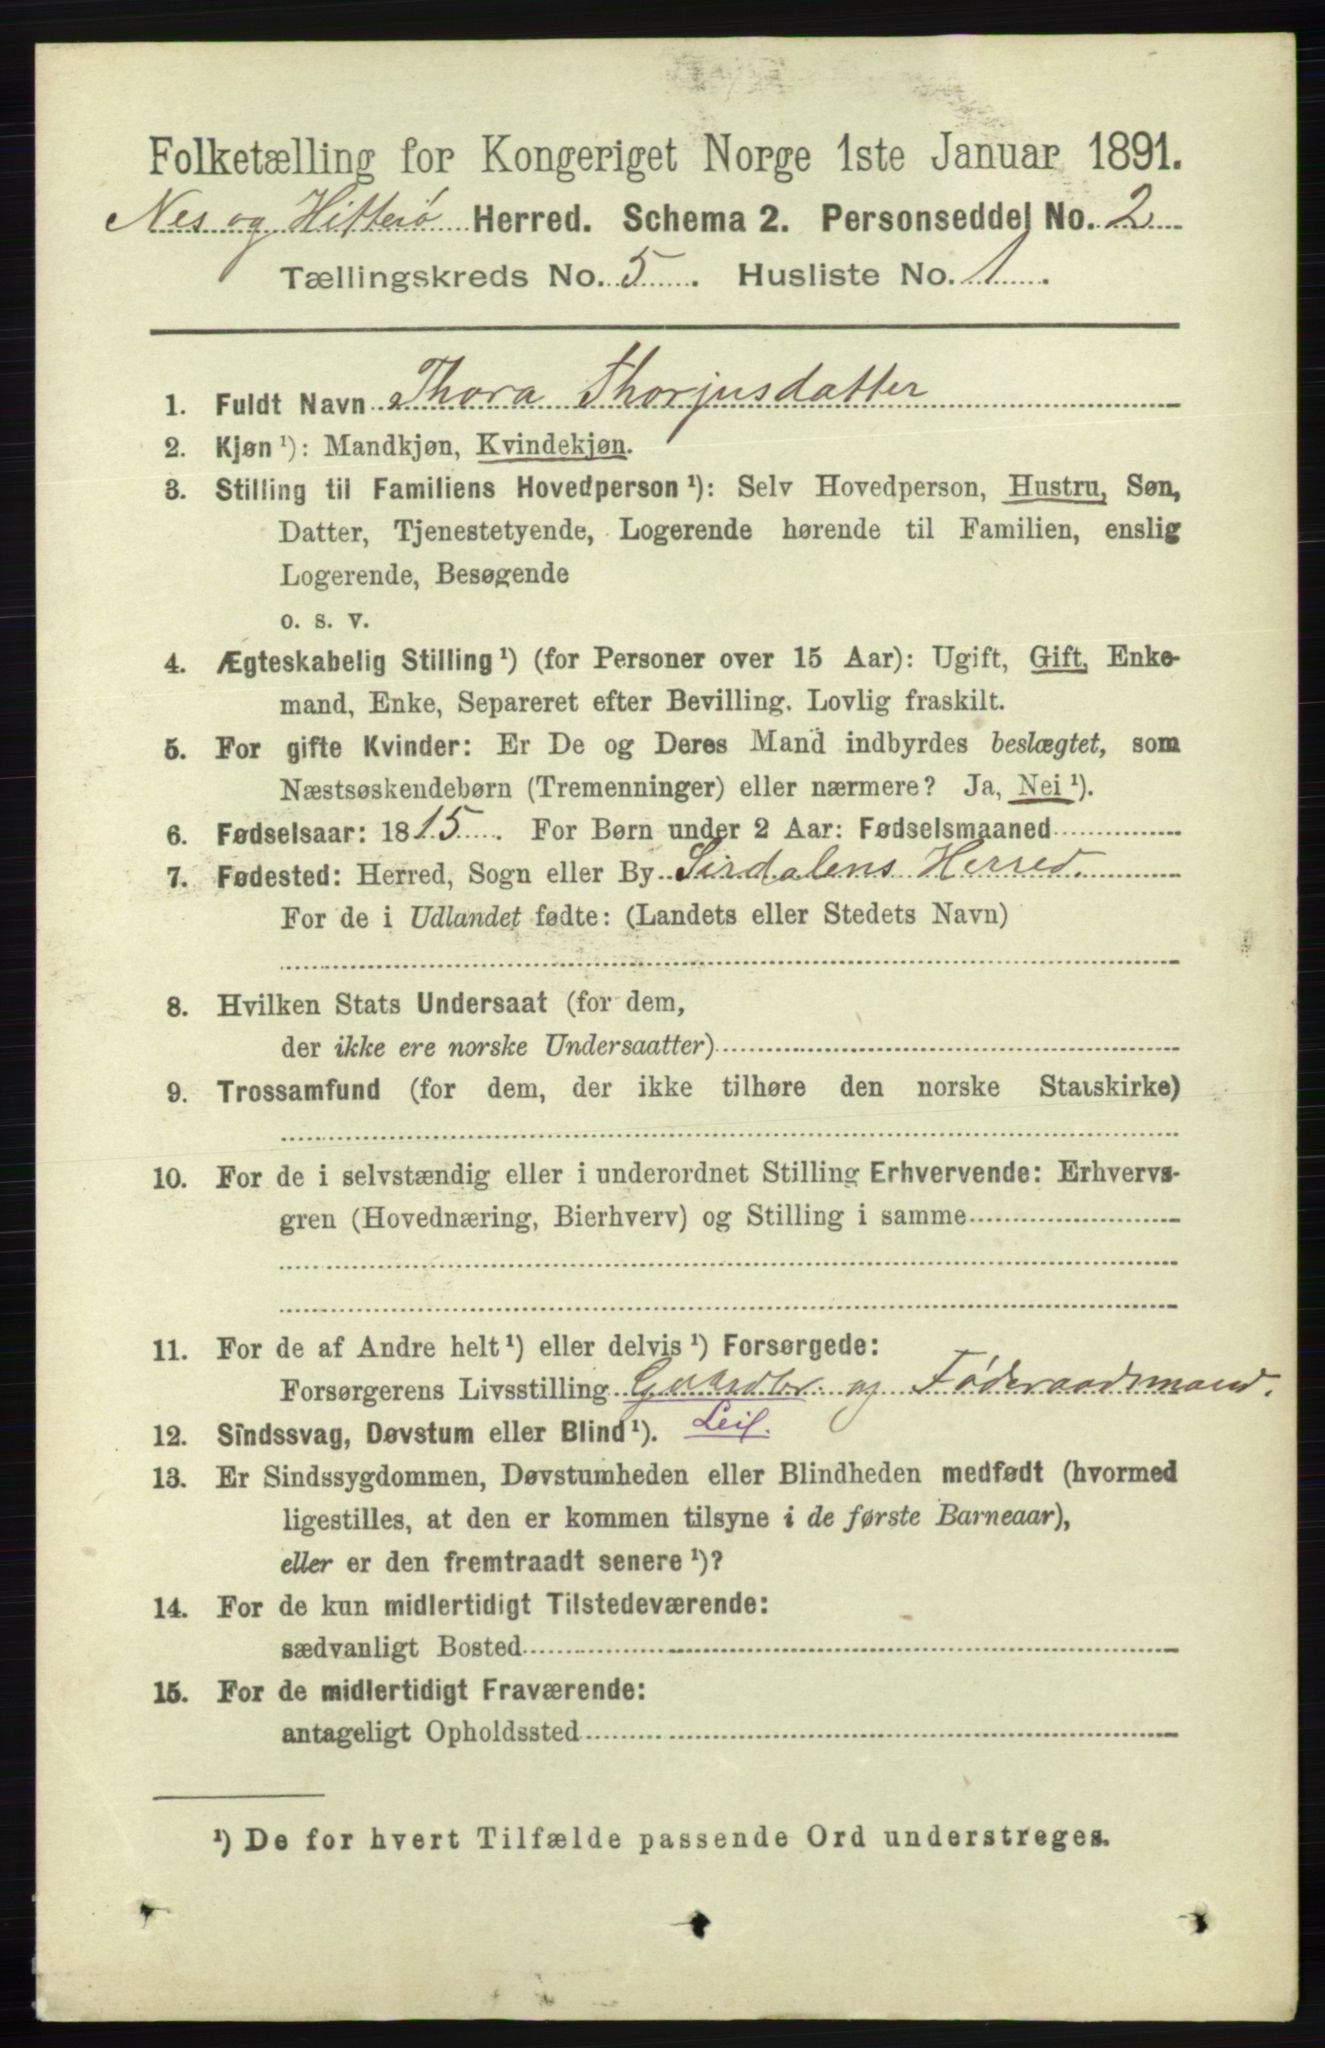 Folketælling for Kongeriget Norge 1ste Januar 1891.
Nes og Hitterö Herred. Schema 2. Personseddel No. 2
Tællingskreds No. 5. Husliste No. 1.
1. Fuldt Navn Thora Thorjusdatter
2. Kjøn ¹): Mandkjøn, Kvindekjøn.
3. Stilling til Familiens Hovedperson ¹): Selv Hovedperson, Hustru, Søn,
Datter, Tjenestetyende, Logerende hørende til Familien, enslig
Logerende, Besøgende
o. s. v.
4. Ægteskabelig Stilling ¹) (for Personer over 15 Aar): Ugift, Gift, Enke-
mand, Enke, Separeret efter Bevilling. Lovlig fraskilt.
5. For gifte Kvinder: Er De og Deres Mand indbyrdes beslægtet, som
Næstsøskendebørn (Tremenninger) eller nærmere? Ja, Nei ¹).
6. Fødselsaar: 1815. For Børn under 2 Aar: Fødselsmaaned
7. Fødested: Herred, Sogn eller By Sirdalens Herred.
For de i Udlandet fødte: (Landets eller Stedets Navn)
8. Hvilken Stats Undersaat (for dem,
der ikke ere norske Undersaatter)
9. Trossamfund (for dem, der ikke tilhøre den norske Statskirke)
10. For de i selvstændig eller i underordnet Stilling Erhvervende: Erhvervs-
gren (Hovednæring, Bierhverv) og Stilling i samme
11. For de af Andre helt ¹) eller delvis ¹) Forsørgede:
Forsørgerens Livsstilling og Föderaadsmand.
12. Sindssvag, Døvstum eller Blind ¹). Leil.
13. Er Sindssygdommen, Døvstumheden eller Blindheden medfødt (hvormed
ligestilles, at den er kommen tilsyne i de første Barneaar),
eller er den fremtraadt senere ¹)?
14. For de kun midlertidigt Tilstedeværende:
sædvanligt Bosted
15. For de midlertidigt Fraværende:
antageligt Opholdssted
¹) De for hvert Tilfælde passende Ord understreges.